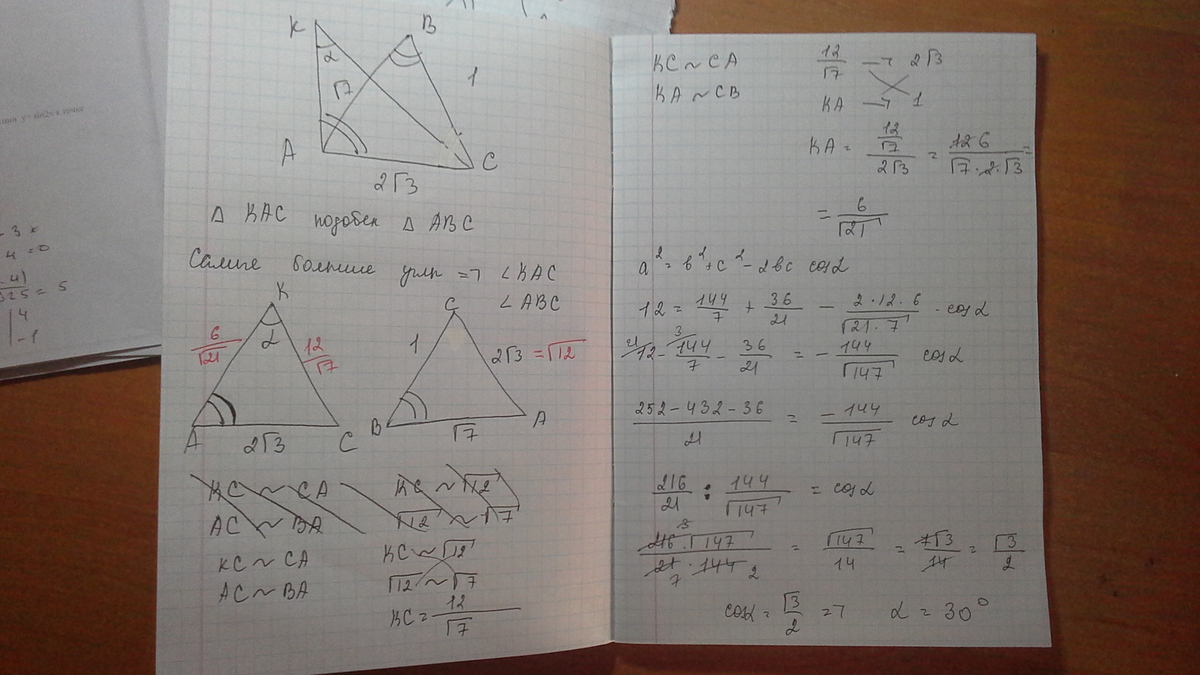 K
B
α
√7
1
A
C
2√3
Δ KAC подобен Δ ABC
Самые большие углы => ∠KAC
∠ABC
K
α
6/√21
12/√7
A
2√3
C
C
1
2√3 = √12
B
√7
A
KC ~ CA
KC ~ √12
AC ~ BA
√12 ~ √7
KC ~ CA
KC ~ √12
AC ~ BA
√12 ~ √7
KC = 12/√7
KC ~ CA
12/√7 → 2√3
KA ~ CB
KA → 1
KA = (12/√7)/(2√3) = 12 6/(√7·2·√3) =
= 6/√21
a² = b² + c² - 2bc cosα
12 = 144/7 + 36/21 - 2·12·6/√(21·7) · cosα
21 12 - 3 144/7 - 36/21 = - 144/√147 cosα
(252 - 432 - 36)/21 = - 144/√147 cosα
216/21 : 144/√147 = cosα
216 3·√147/(21 7·144 2) = √147/14 = 7√3/14 = √3/2
cosα = √3/2 => α = 30°
- 3
4 = 0
325 = 5
4
-1